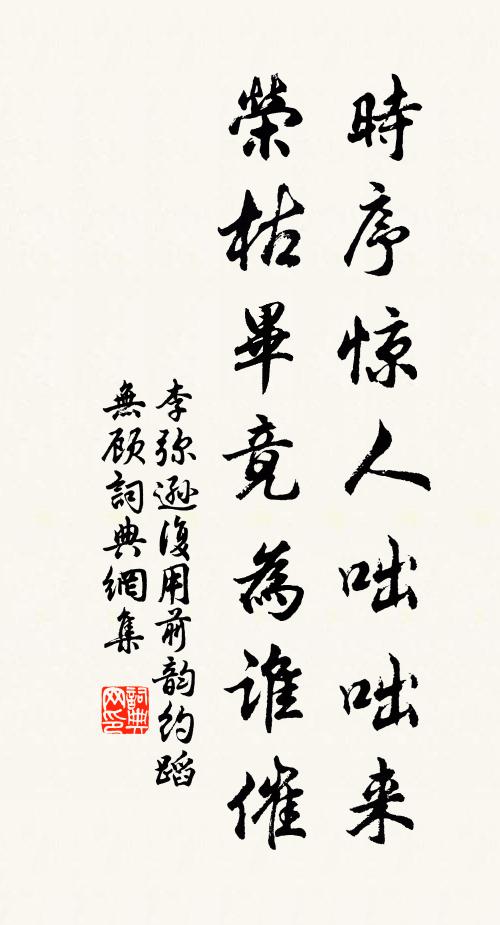 時序惊人咄咄来
榮枯畢竟為誰催
李弥遜復用前韵约蹈
無顾詞典網集
詞典网印